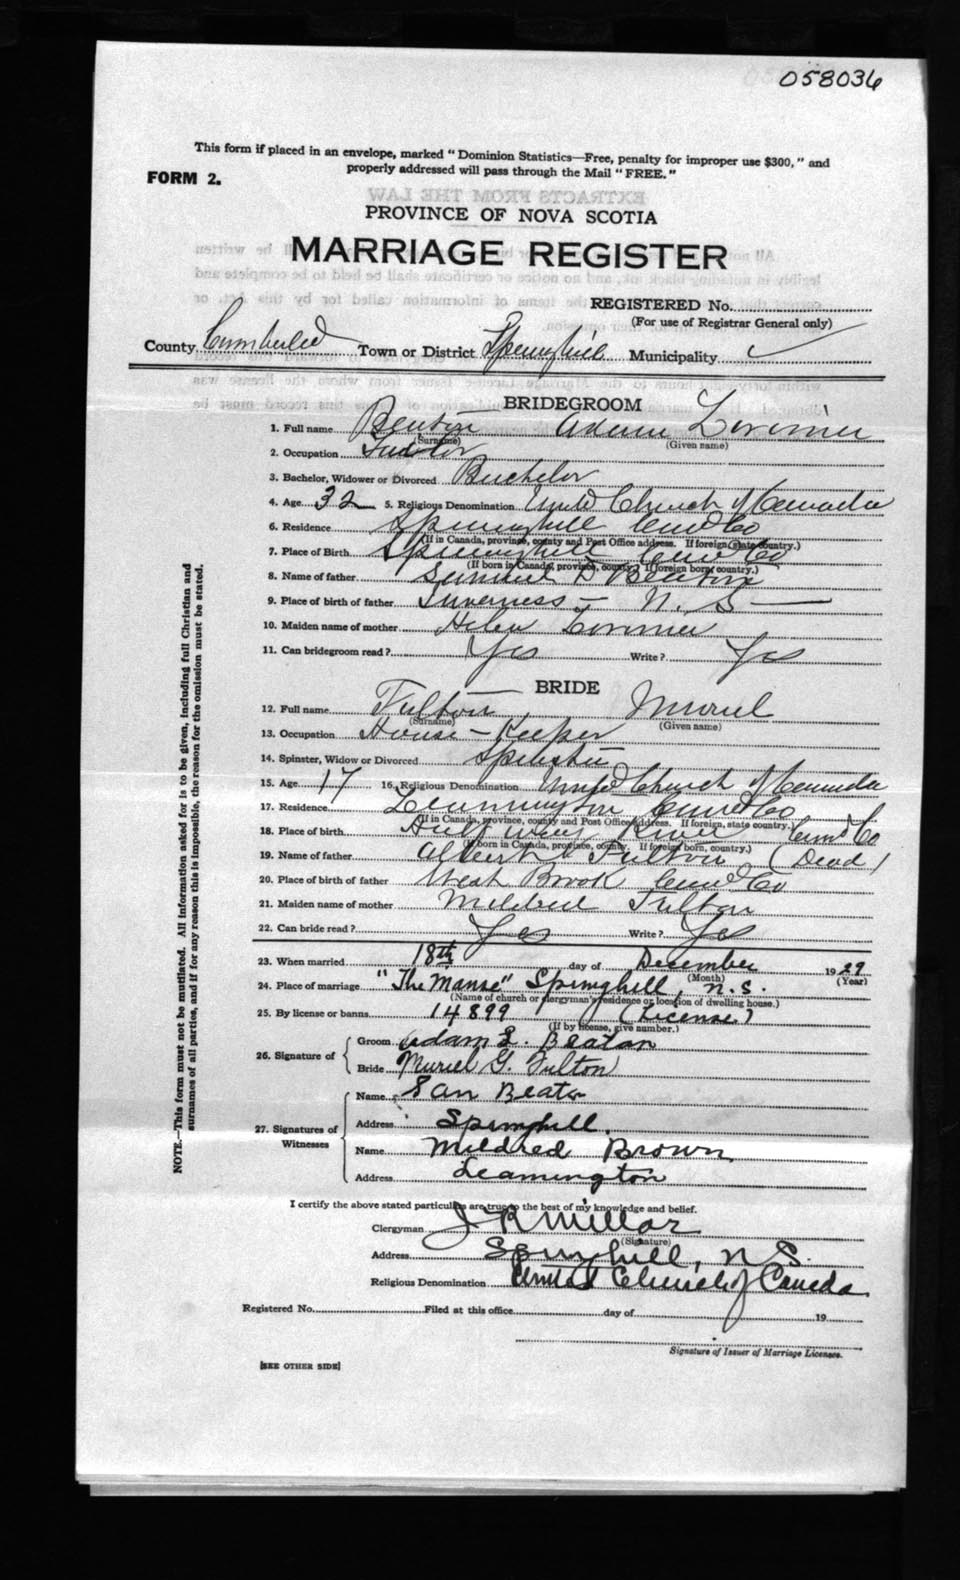 058036
This form if placed in an envelope, marked "Dominion Statistics—Free, penalty for improper use $300," and
properly addressed will pass through the Mail "FREE."
FORM 2.
EXTRACTS FROM THE LAW
PROVINCE OF NOVA SCOTIA
MARRIAGE REGISTER
REGISTERED No.
(For use of Registrar General only)
County Cumberland Town or District Springhill Municipality
BRIDEGROOM
1. Full name Beaton Adam Lorimer
(Surname) (Given name)
2. Occupation
3. Bachelor, Widower or Divorced Bachelor
4. Age 32 5. Religious Denomination United Church of Canada
6. Residence Springhill Cum Co
(If in Canada, province, county and Post Office address. If foreign, state country.)
7. Place of Birth Springhill Cum Co
(If born in Canada, province, county. If foreign born, country.)
8. Name of father Samuel D Beaton
9. Place of birth of father Inverness — N. S
10. Maiden name of mother Helen Lorimer
11. Can bridegroom read? Yes Write? Yes
BRIDE
12. Full name Fulton Muriel
(Surname) (Given name)
13. Occupation House-Keeper
14. Spinster, Widow or Divorced Spinster
15. Age 17 16. Religious Denomination United Church of Canada
17. Residence Leamington Cum Co
(If in Canada, province, county and Post Office address. If foreign, state country.)
18. Place of birth Half way River Cum Co
(If born in Canada, province, county. If foreign born, country.)
19. Name of father Albert Fulton (Dead)
20. Place of birth of father West Brook Cum Co
21. Maiden name of mother Mildred Fulton
22. Can bride read? Yes Write? Yes
23. When married 18th day of December 1929
(Month) (Year)
24. Place of marriage "The Manse" Springhill, N.S.
(Name of church or clergyman's residence or location of dwelling house.)
25. By license or banns 14899 (License)
(If by license, give number.)
26. Signature of Groom Adam L. Beaton
Bride Muriel G. Fulton
27. Signatures of Witnesses
Name Dan Beaton
Address Springhill.
Name Mildred Brown
Address Leamington
I certify the above stated particulars are true to the best of my knowledge and belief.
Clergyman J R Millar
(Signature)
Address Springhill, N S.
Religious Denomination United Church of Canada
Registered No. Filed at this office day of 19
Signature of Issuer of Marriage Licenses.
[SEE OTHER SIDE]
NOTE.—This form must not be mutilated. All information asked for is to be given, including full Christian and
surnames of all parties, and if for any reason this is impossible, the reason for the omission must be stated.